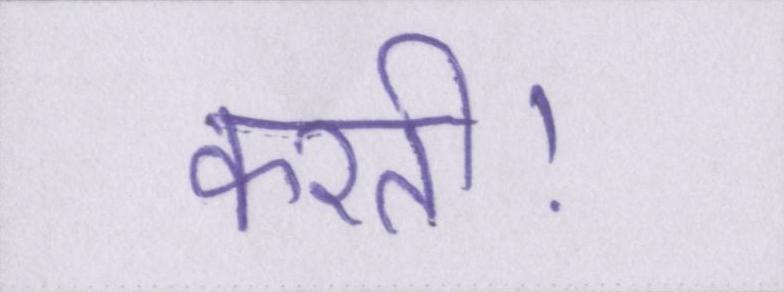 करती!